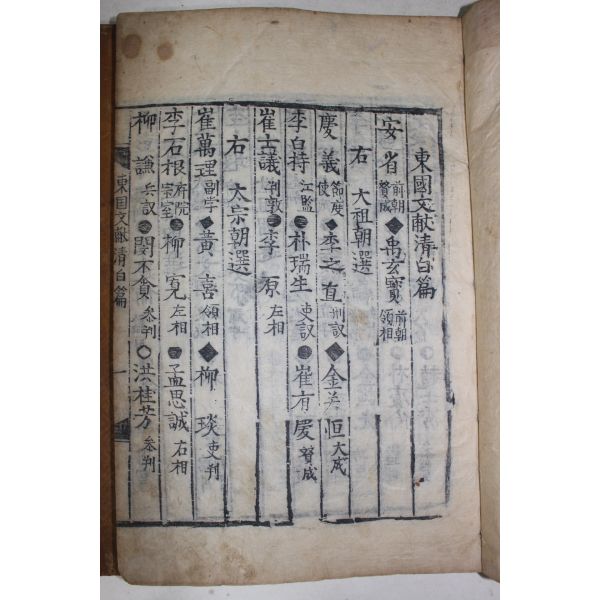 東國文献清白篇
安省 前朝贊成 禹玄寶 前朝領相
右 大祖朝選
慶義 節度使 李之直 刑議 金若恒 大成
李白持 江監 朴瑞生 吏議 崔有慶 贊成
崔士議 判敦 李原 左相
右 太宗朝選
崔萬理 副学 黃喜 領相 柳琰 吏判
李石根 府院宗室 柳寬 左相 孟思誠 右相
柳謙 兵議 閔不貪 叅判 洪桂芳 叅判
東国文献清白篇 一